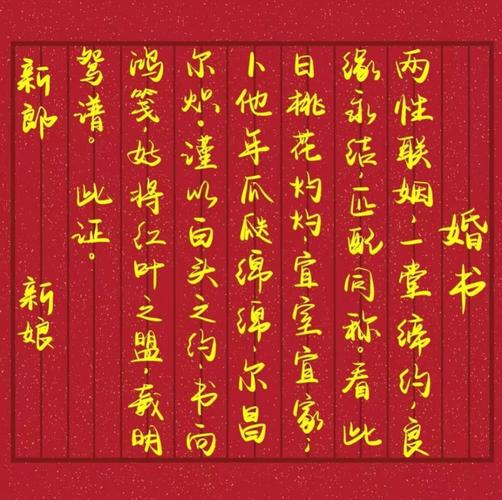 婚书
两性联姻，一堂缔约，良
缘永结，匹配同称。看此
日桃花灼灼，宜室宜家，
卜他年瓜瓞绵绵，尔昌
尔炽。谨以白头之约，书向
鸿笺，好将红叶之盟，载明
鸳谱。此证。
新郎 新娘